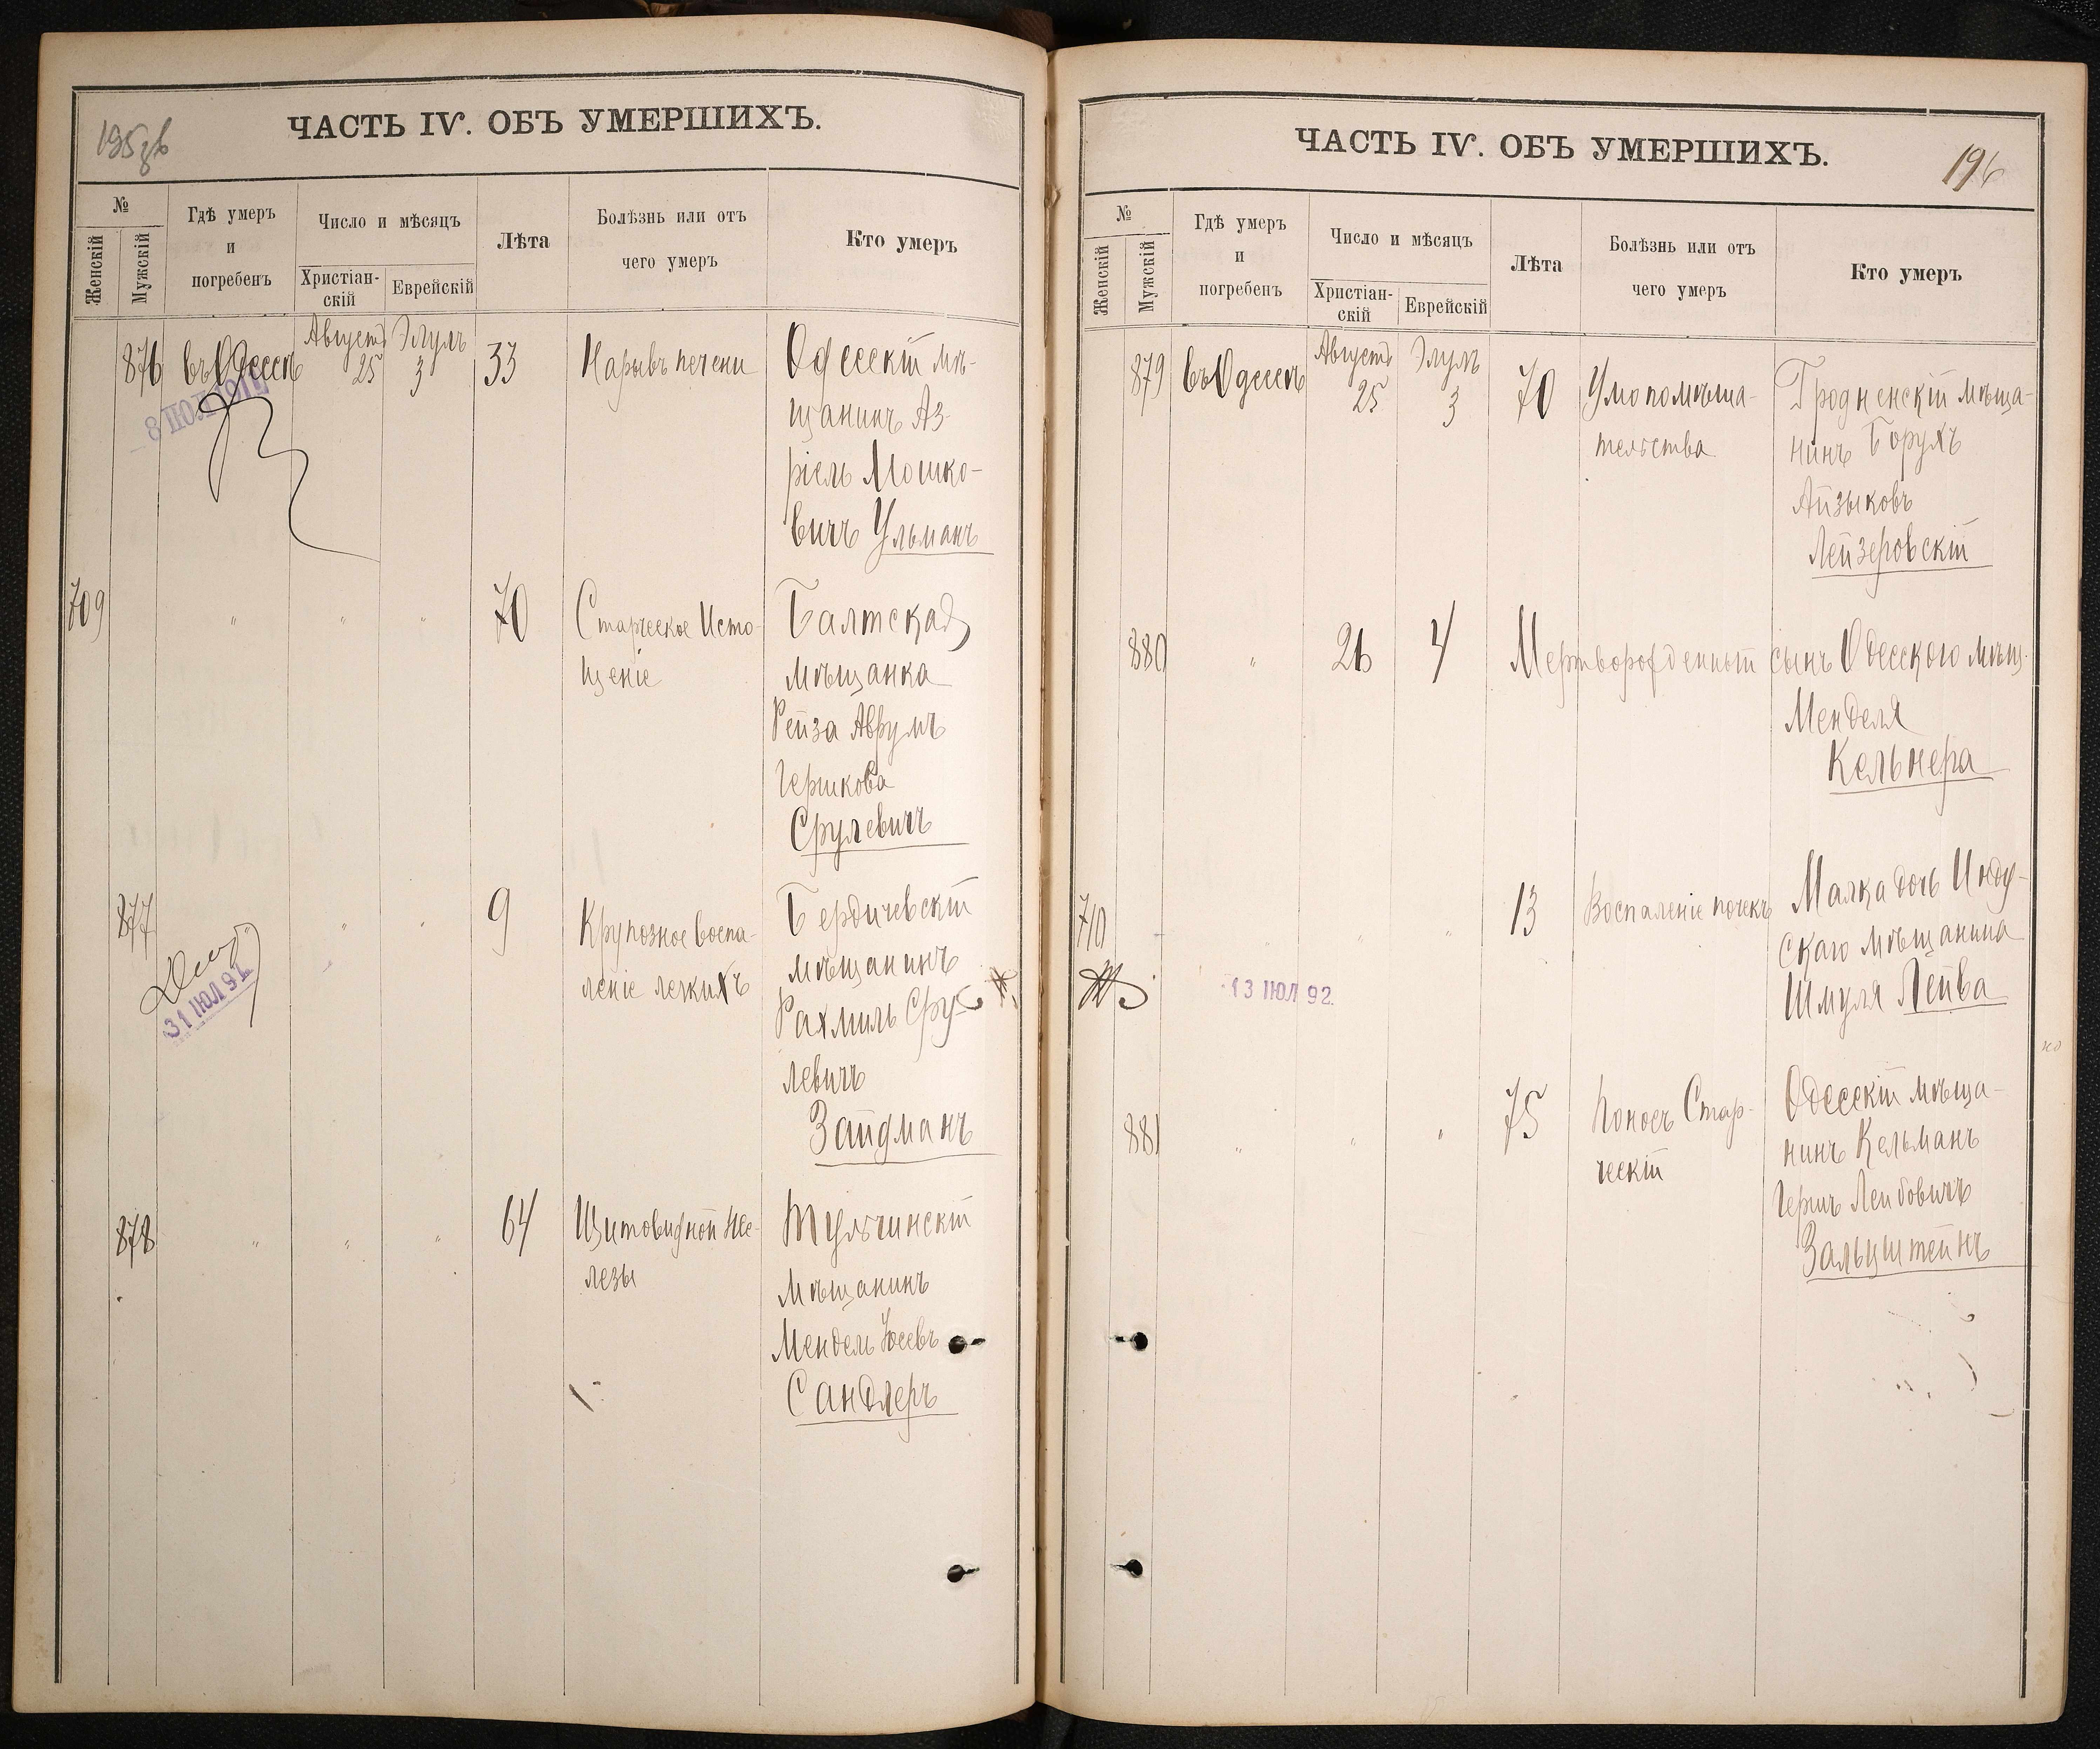 195 об
ЧАСТЬ IV. ОБЪ УМЕРШИХЪ.
№
Женскій
Мужскій
Гдѣ умеръ
и
погребенъ
Число и мѣсяцъ
Христіан-
скій
Еврейскій
Лѣта
Болѣзнь или отъ
чего умеръ
Кто умеръ
876 въ Одессѣ Августъ 25 Элулъ 3 33 Нарывъ печени Одесскій мѣ-
щанинъ Аз-
ріель Мошко-
вичъ Ульманъ
709 " " " 70 Старческое Исто-
щеніе
Балтская
мѣщанка
Рейза Аврумъ
Гершкова
Срулевичъ
877 " " " 9 Крупозное воспа-
леніе легкихъ
31 ІЮЛ 91
Бердичевскій
мѣщанинъ
Рахмиль Сру-
левичъ
Зайдманъ
878 " " " 64 Щитовидной же-
лезы
Тульчинскій
Мѣщанинъ
Мендель Іосевъ
Сандлеръ
ЧАСТЬ IV. ОБЪ УМЕРШИХЪ.
196
№
Женскій
Мужскій
Гдѣ умеръ
и
погребенъ
Число и мѣсяцъ
Христіан-
скій
Еврейскій
Лѣта
Болѣзнь или отъ
чего умеръ
Кто умеръ
879 въ Одессѣ Августъ 25 Элулъ 3 70 Умопомѣша-
тельства
Гродненскій мѣща-
нинъ Борухъ
Айзыковъ
Лейзеровскій
880 " 26 4 Мертворожденный сынъ Одесского мѣщ.
Менделя
Кельнера
710 " " " 13 Воспаленіе почекъ
13 ІЮЛ 92.
Малка дочь Инду-
скаго мѣщанина
Шмуля Лейва
881 " " " 75 Поносъ Стар-
ческій
Одесскій мѣща-
нинъ Кельманъ
Гершъ Лейбовичъ
Зальцштейнъ